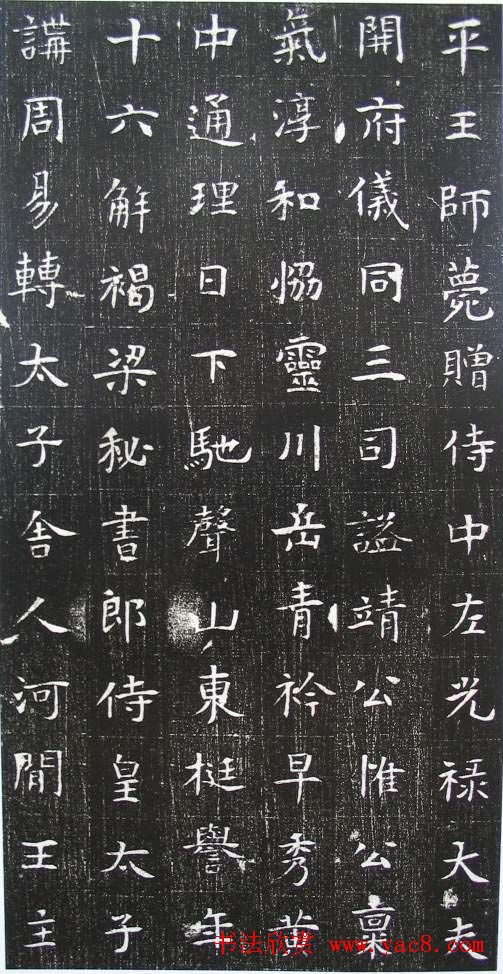 平王師薨贈侍中左光禄大夫
開府儀同三司謚靖公惟公稟
氣淳和恊靈川岳青衿早秀黄
中通理日下馳聲山東挺譽年
十六解褐梁秘書郎侍皇太子
講周易轉太子舍人河間王主
书法欣赏 www.yac8.com